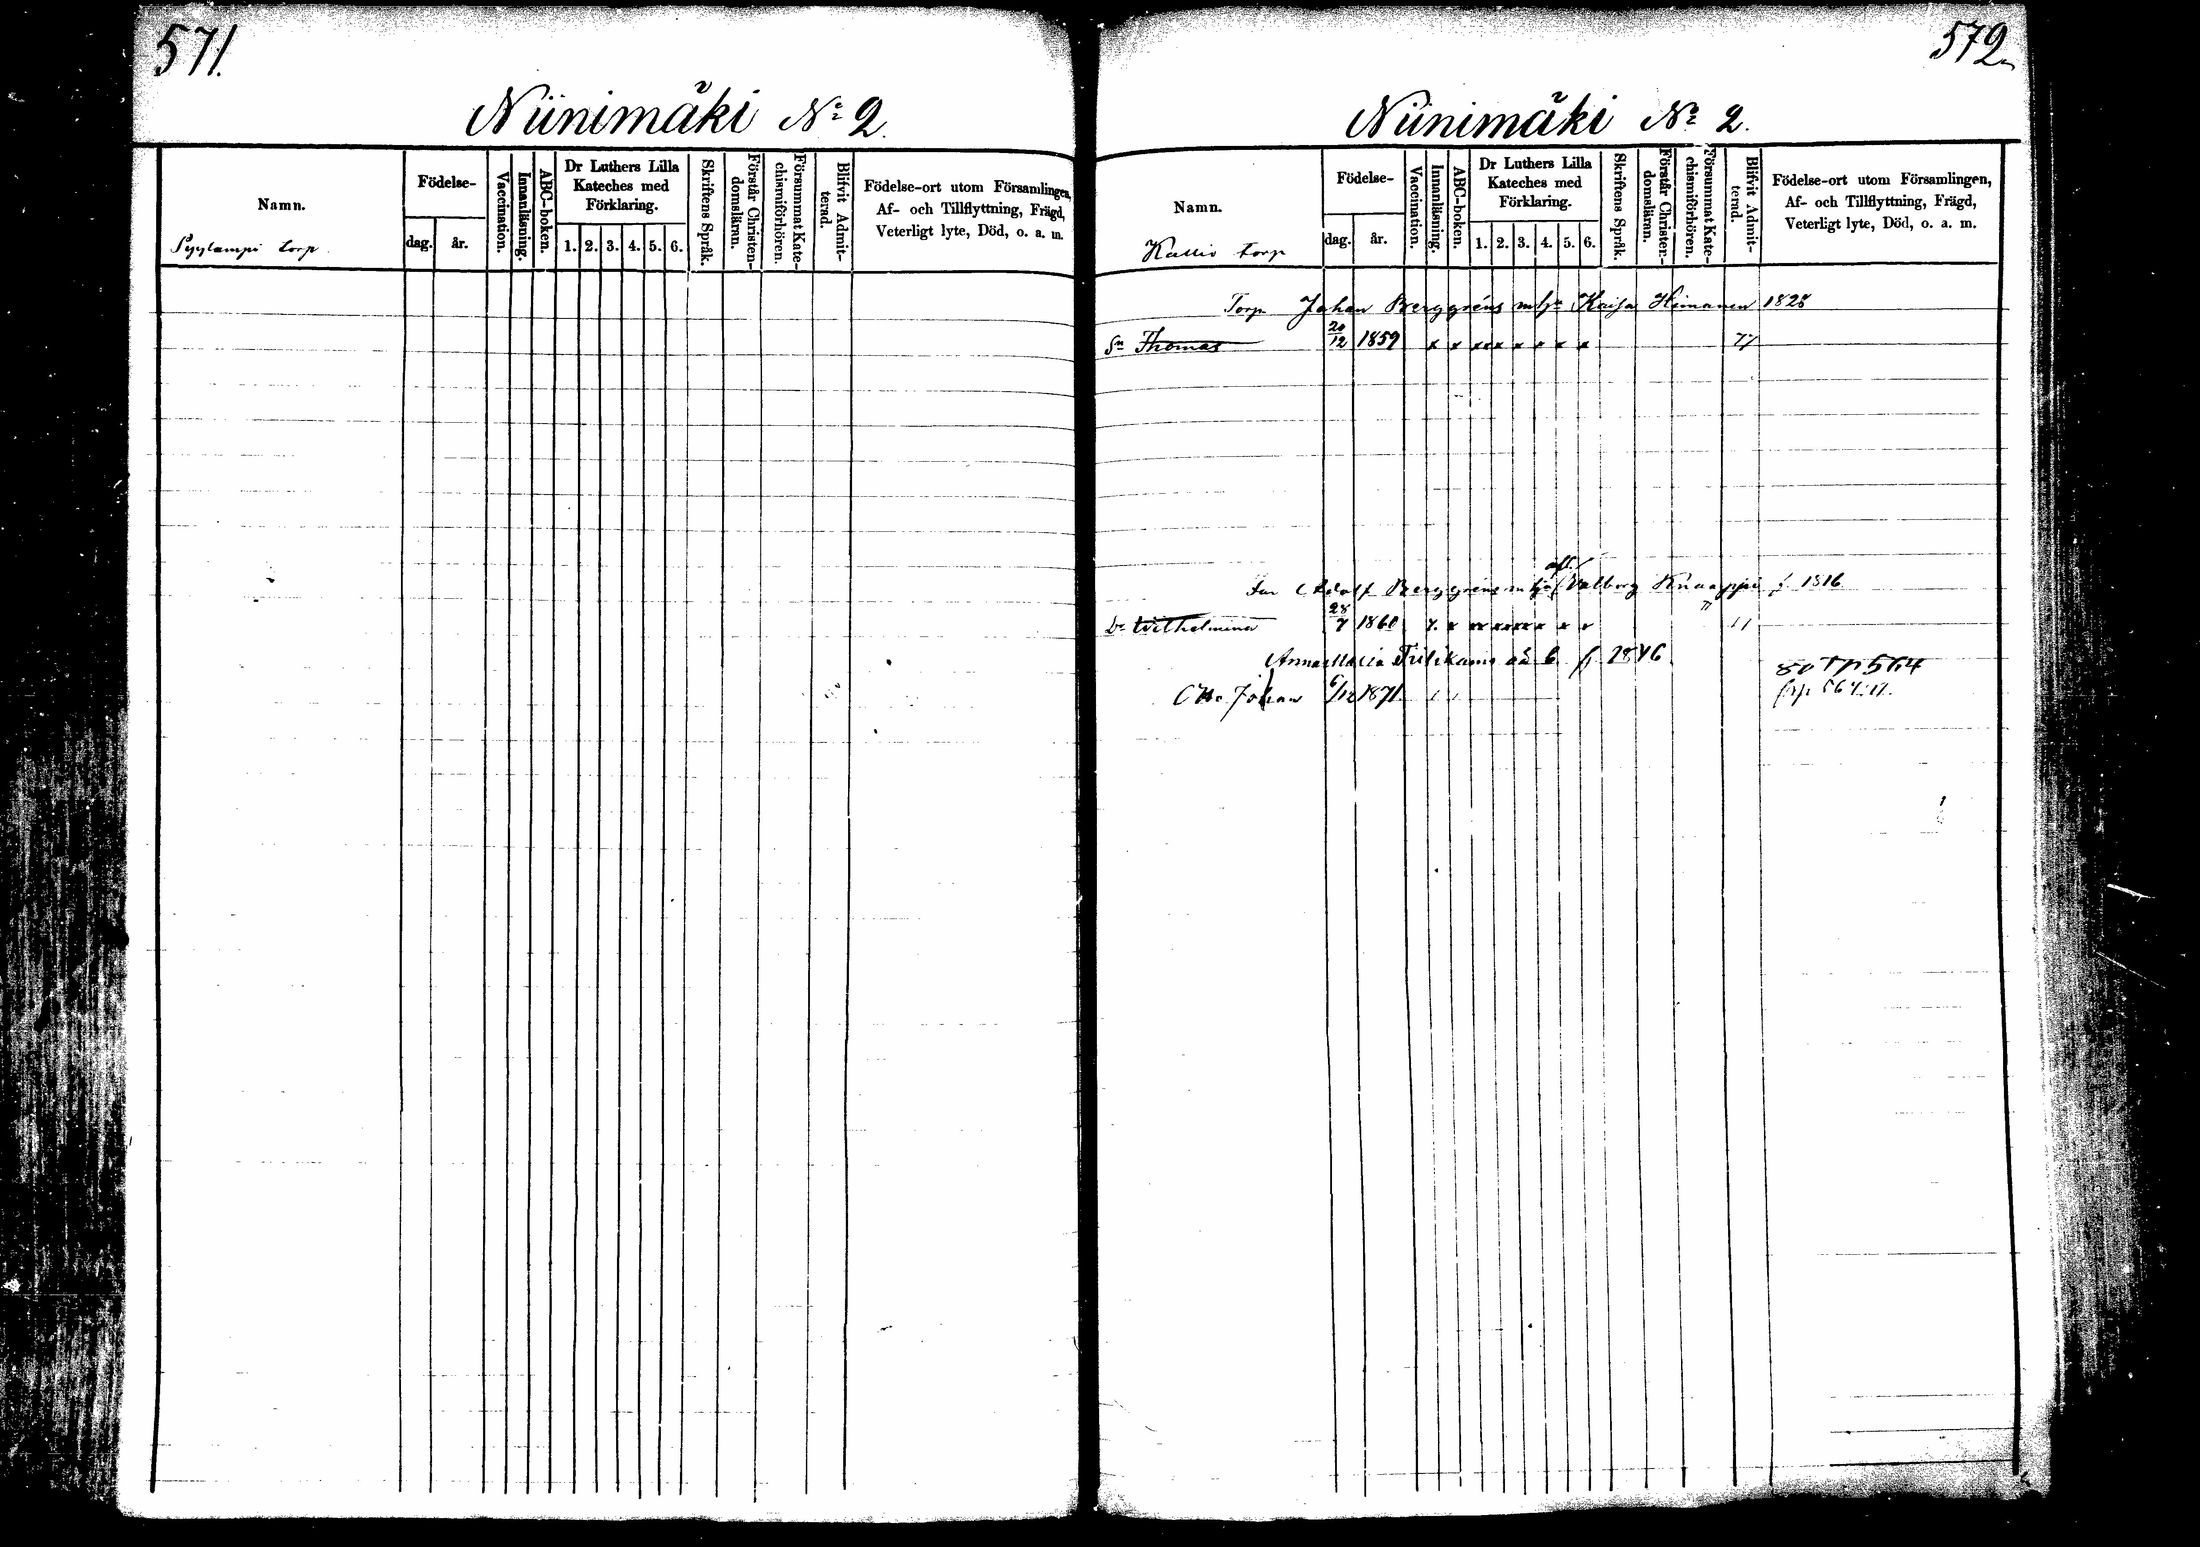 571.
Niinimäki No 2.
Namn.
Födelse-
dag.
år.
Vaccination.
Innanläsning.
ABC-boken.
Dr Luthers Lilla
Kateches med
Förklaring.
1. 2. 3. 4. 5. 6.
Skriftens Språk.
Förstår Christen-
domsläran.
Försummat Kate-
chismiförhören.
Blifvit Admit-
terad.
Födelse-ort utom Församlingen,
Af- och Tillflyttning, Frägd,
Veterligt lyte, Död, o. a. m.
Pyylampi torp.
572
Niinimäki No 2.
Namn.
Födelse-
dag.
år.
Vaccination.
Innanläsning.
ABC-boken.
Dr Luthers Lilla
Kateches med
Förklaring.
1. 2. 3. 4. 5. 6.
Skriftens Språk.
Förstår Christen-
domsläran.
Försummat Kate-
chismiförhören.
Blifvit Admit-
terad.
Födelse-ort utom Församlingen,
Af- och Tillflyttning, Frägd,
Veterligt lyte, Död, o. a. m.
Kallio torp
Torp. Johan Berggréns Kaisa Heimanen 1828
Sn Thomas 20/12 1859 x x xxx x x x x 77
Adolf Berggréns Valborg Knaappi f. 1816
Dr Wilhelmina 28/7 1860
Anna Maria 6 f. 1846 80 564
Otto Johan 6/12 1871.